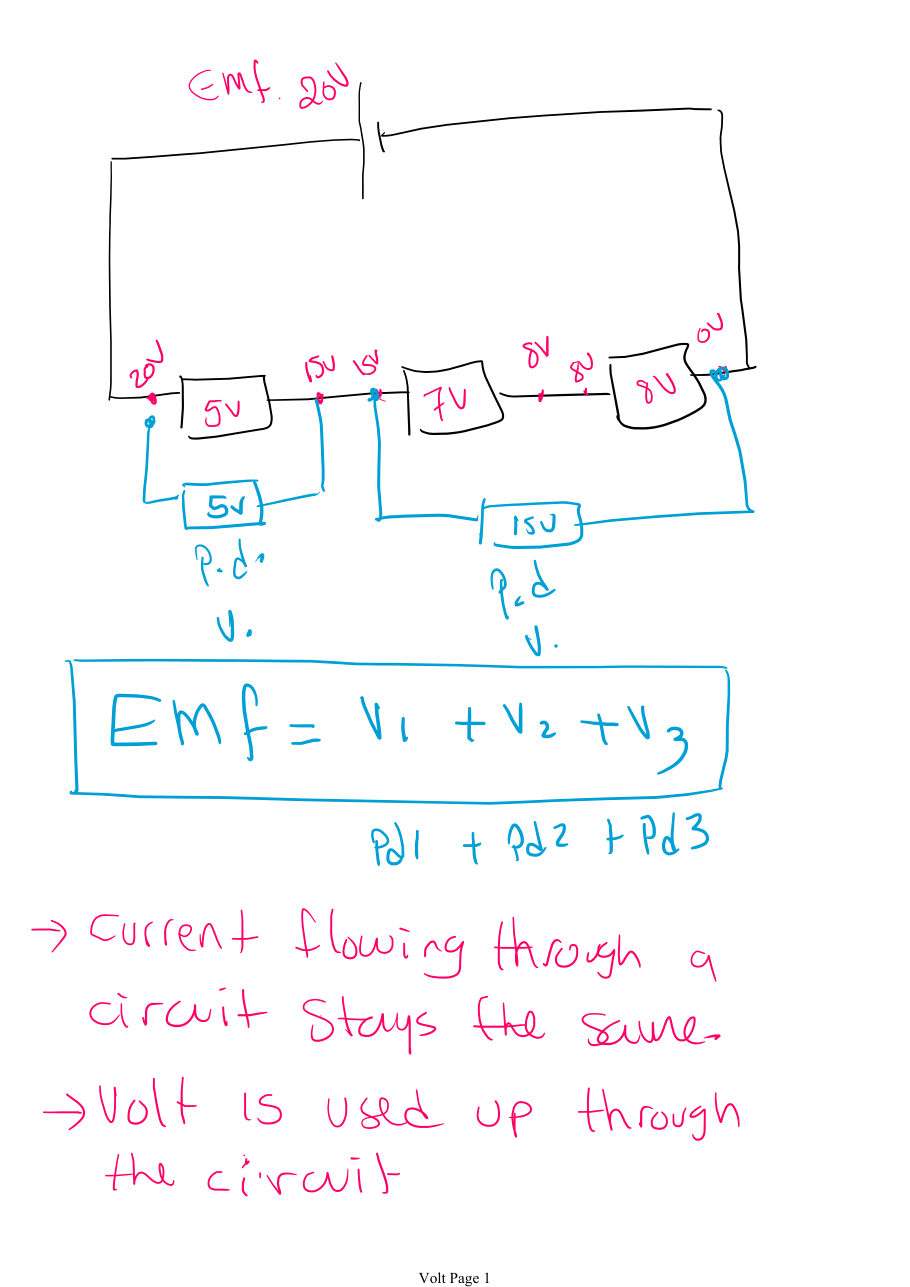 Emf. 20V
20V
15V
15V
8V
8V
0V
5V
7V
8V
5V
15V
P.d.
P.d
V.
V.
Emf = V1 + V2 + V3
Pd1 + Pd2 + Pd3
→ Current flowing through a
circuit stays the same.
→ Volt is used up through
the circuit
Volt Page 1